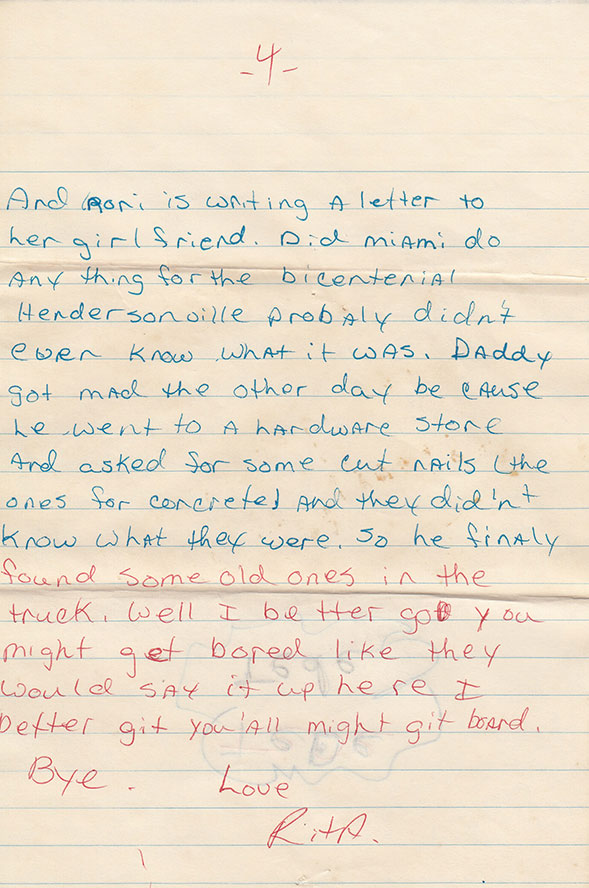 -4-
And Rori is writing A letter to
her girlfriend. Did miAmi do
Any thing for the bicentenial
Hendersonville probaly didn't
even know what it was. DAddy
got mad the other day be cause
he went to A hardware store
And asked for some cut nails (the
ones for concrete) and they did'n't
know what they were. So he finaly
found some old ones in the
truck. Well I be tter go you
might get bored like they
would say it up he re I
better git you'all might git board.
Bye. Love
RitA.